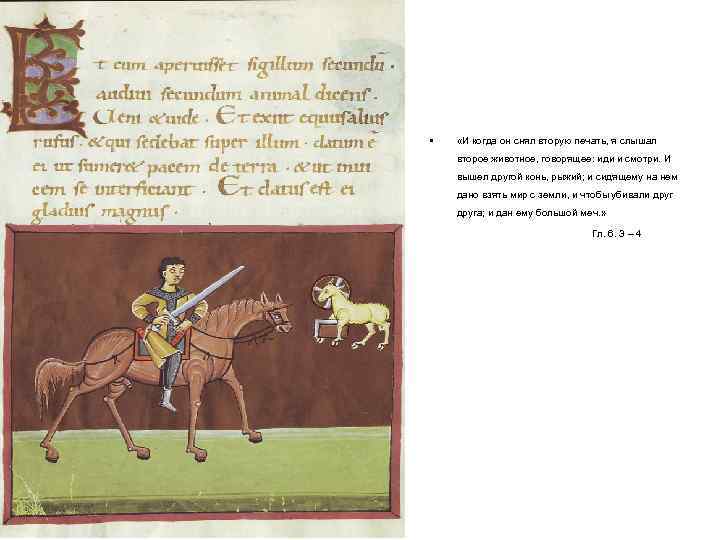 Et cum aperuisset sigillum secundū.
audiui secundum animal dicens.
Ueni & uide. Et exiit equus alius
rufus. & qui sedebat super illum. datum ē
ei ut sumer& pacem de terra. & ut inui
cem se interficiant. Et datus est ei
gladius magnus.
• «И когда он снял вторую печать, я слышал
второе животное, говорящее: иди и смотри. И
вышел другой конь, рыжий; и сидящему на нем
дано взять мир с земли, и чтобы убивали друг
друга; и дан ему большой меч.»
Гл. 6. 3 – 4